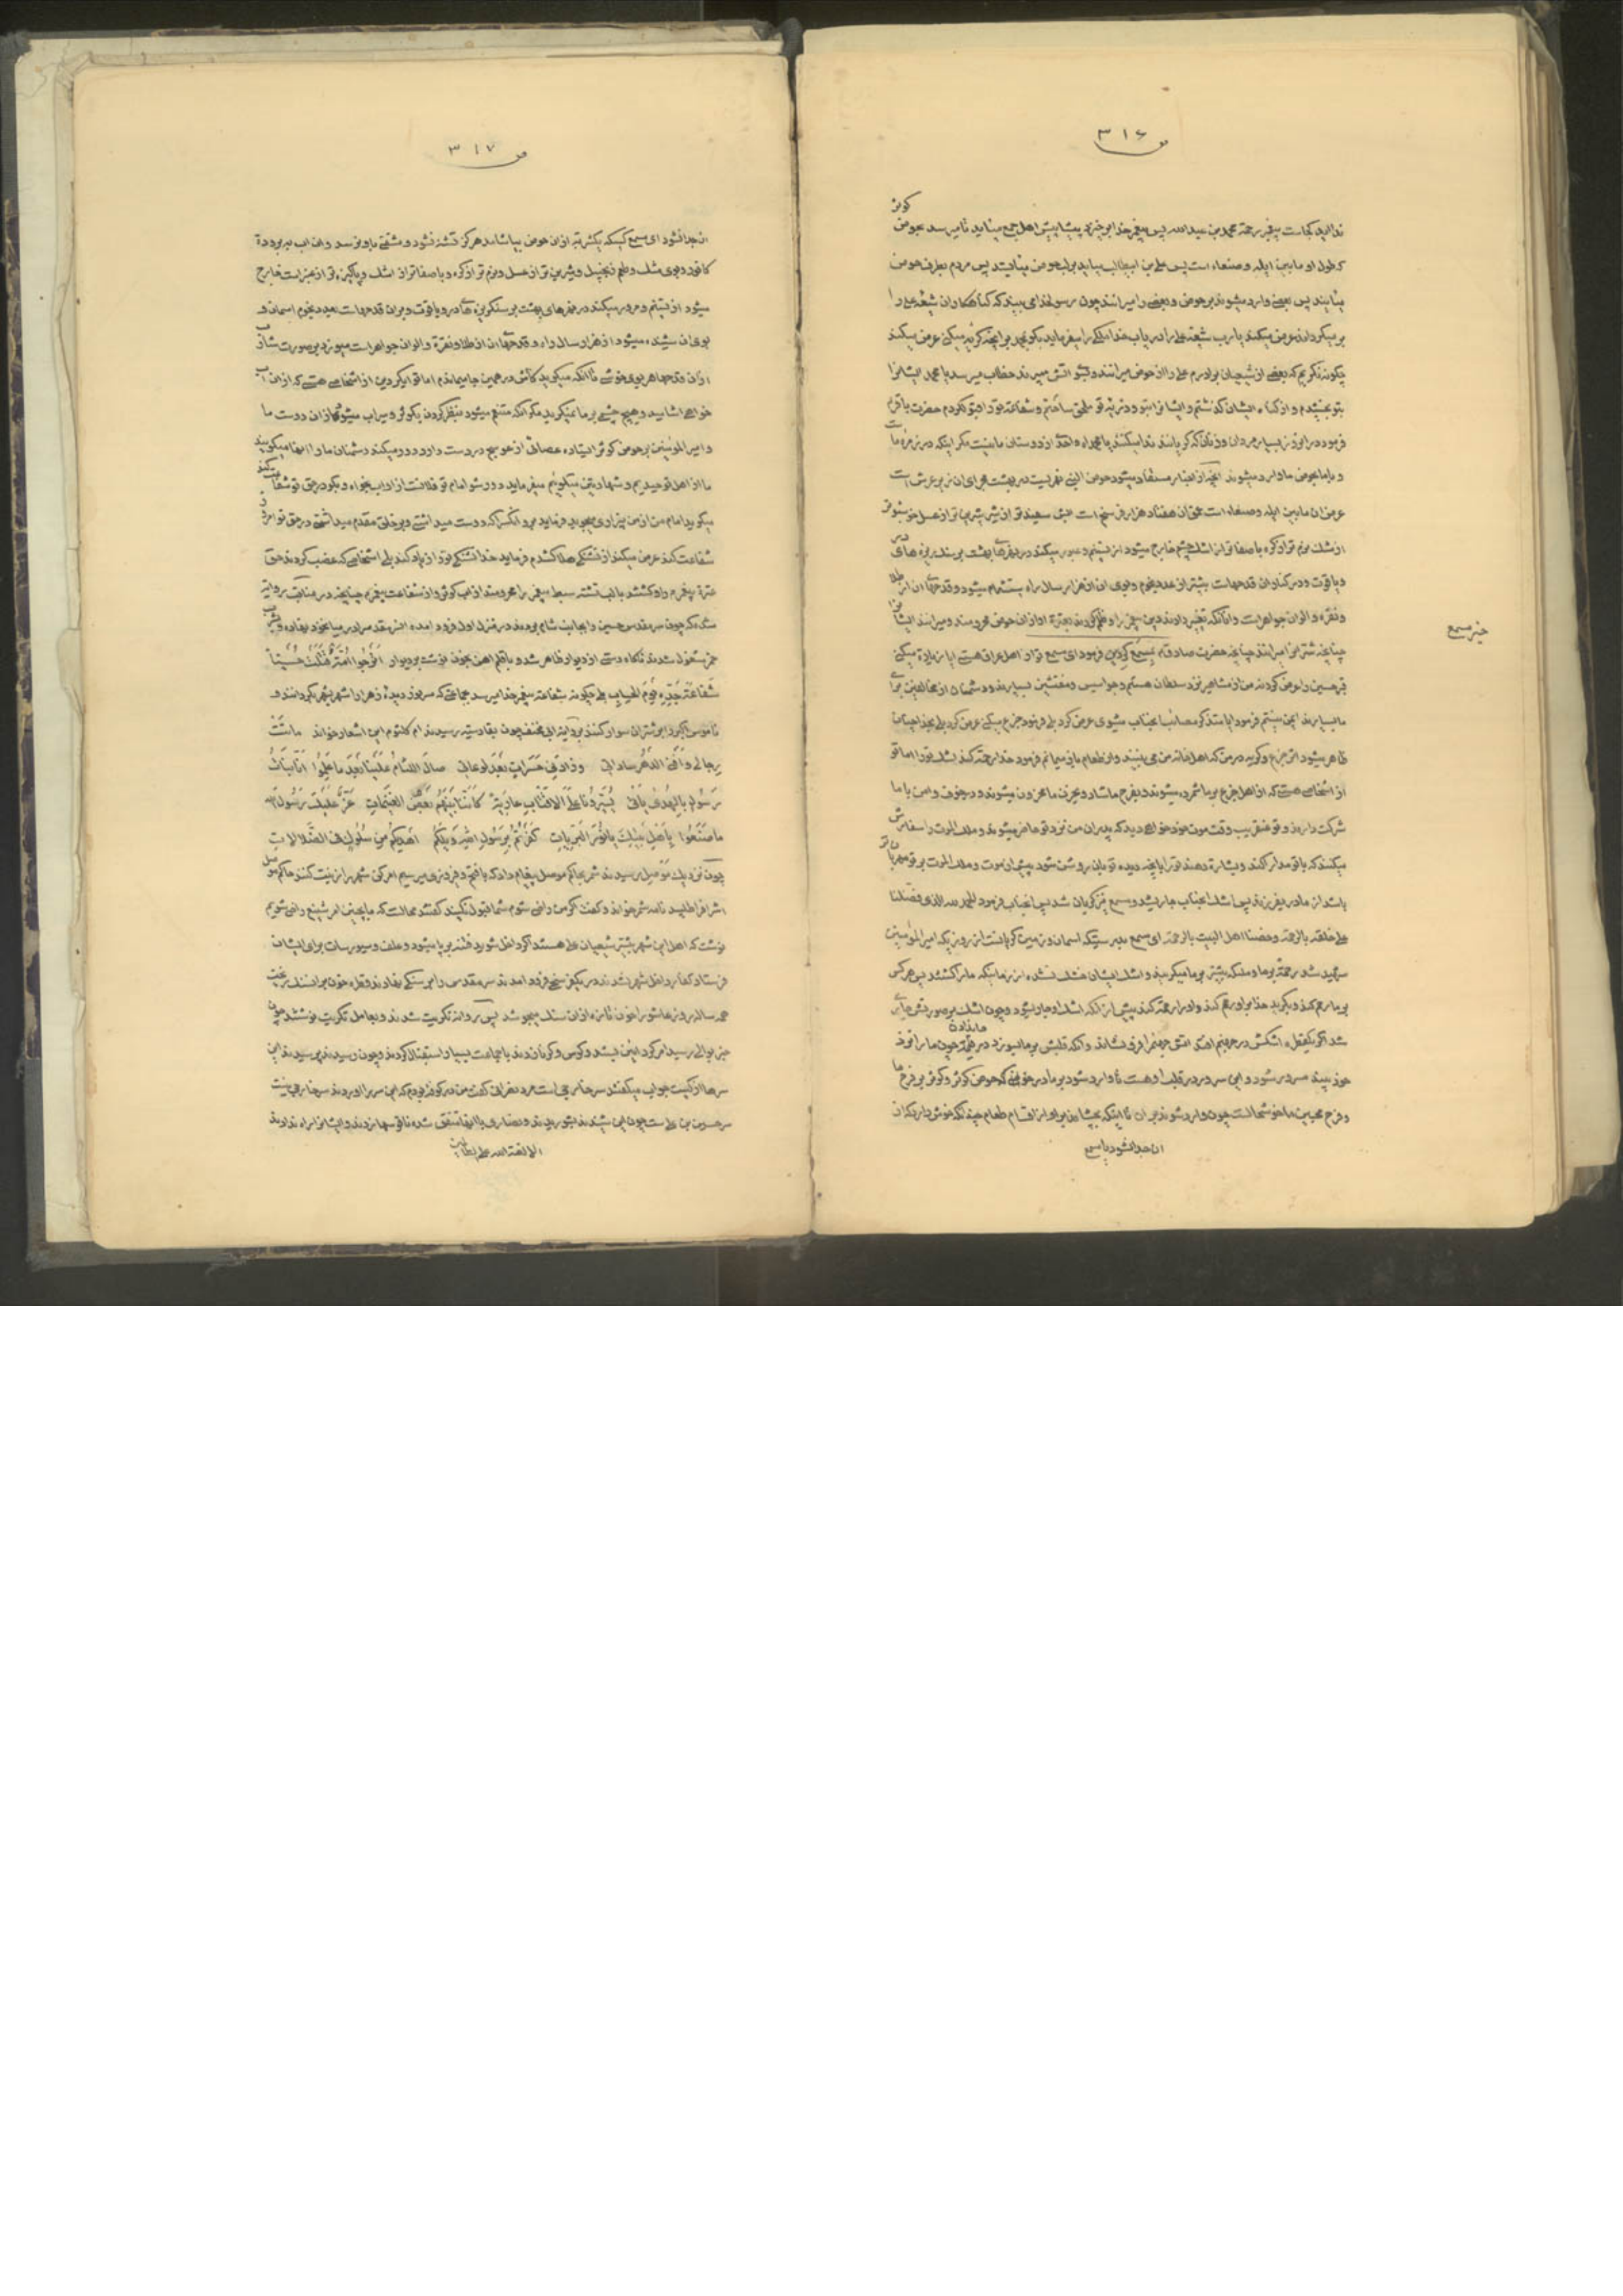 ص ٣١۶
کوثر
ندا اید کجاست پیغمبر رحمة محمد بن عبدالله پس پیغمبر خدا بر خیزد پیشاپیش اهل جمع میناید تا میرسد بحوض
که طول او مابین ایله و صنعاء است پس علی بن ابیطالب بیاید بر لب حوض میایستد پس مردم بطرف حوض
میایند پس بعضی وارد میشوند بر حوض و بعضی را میرانند چون رسولخدا می بیند که گناهکاران شیعه علی را
بر میگردانند عرض میکند یا رب شیعه علی را دریاب خدا ملکی را میفرماید بگو بمحمد برای چه گریه میکنی عرض میکند
چگونه نگریم که بعضی از شیعیان برادرم علی را از حوض میرانند و بسوی اتش میبرند خطاب میرسد یا محمد ایشانرا
بتو بخشیدم و از گناه ایشان گذشتم و ایشانرا بتو و ذریه تو ملحق ساختم و شفاعة تو را قبول کردم حضرت باقر
فرمود در انروز بسیار مردان و زنان که گریانند ندا میکنند یا محمداه و احدی از دوستان ما نیست مگر اینکه در زمره ماست
و با ما بحوض ما وارد میشوند انچه از اخبار مستفاد میشود حوض النبی نهریست در بهشت مجرای ان زیر عرش است
عرض ان مابین ایله و صنعاء است عمق ان هفتاد هزار فرسخ است سفید تر از شیر شیرین تر از عسل خوشبوتر
از مشک نرم تر از کره با صفاتر از اشک چشم خارج میشود از تسنیم و عبور میکند در نهرهای بهشت بر سنک ریزه های در
و یاقوت و در کنار ان قدحهاست بیشتر از عدد نجوم و بوی ان از هزار سال راه استشمام میشود و قدحهای ان از طلا
و نقره و الوان جواهرات و انانکه تغییر دادند دین پیغمبر را و ظلم کردند بعترة او از ان حوض محرومند و میرانند ایشانرا
چنانچه شتر را میرانند چنانچه حضرت صادق بمسمع کردین فرمود ای مسمع تو از اهل عراق هستی ایا زیارة میکنی
خبر مسمع
قبر حسین را عرض کرد نه من از مشاهیر نزد سلطان هستم و جواسیس و مفتشین بسیارند و دشمنان از مخالفین برای
ما بسیارند ایمن نیستم فرمود ایا متذکر مصائب انجناب میشوی عرض کرد بلی فرمود جزع میکنی عرض کرد بلی بخدا چنان
ظاهر میشود اثر جزع و گریه در من که اهل خانه من می بینند و از طعام باز میمانم فرمود خدا رحمة کند اشک تو را اما تو
از اشخاصی هستی که از اهل جزع بر ما شمرده میشوند و بفرح ما شاد و بحزن ما محزون میشوند و در خوف و امن با ما
شرکت دارند و تو عنقریب وقت موت خود خواهی دید که پدران من نزد تو حاضر میشوند و ملک الموت را سفارش
میکنند که با تو مدارا کند و بشارة دهند تو را بانچه دیده تو بان روشن شود پیش از موت و ملک الموت بر تو مهربانتر
باشد از مادر بفرزند پس اشک انجناب جاری شد و مسمع نیز گریان شد پس انجناب فرمود الحمد لله الذی فضلنا
علی خلقه بالرحمة و خصنا اهل البیت بالرحمة ای مسمع بدرستیکه اسمان و زمین گریانست از روزیکه امیرالمؤمنین
شهید شد رحمة بر ما و ملئکه بیشتر بر ما میگریند و اشک ایشان خشک نشده از زمانیکه ما را کشتند پس هر کس
بر ما رحم کند و بگرید خدا بر او رحم کند و او را رحمة کند پیش از انکه اشک او جاری شود و چون اشک بر صورتش جاری
شد اگر یکقطره اشکش در جهنم افتد اتش جهنم را فرو نشاند و انکه قلبش بر ما بسوزد در مرتبه چون ما را نزد
خود بیند مسرور شود و این سرور در قلب او هست تا وارد شود بر ما در حوض که حوض کوثر و کوثر بر فرح ما
و فرح محبین ما خوشحالست چون وارد شوند بر ان تا اینکه بچشاند بر او از اقسام طعام چندانکه خوش ندارد که از
ان جدا شود یا مسمع
ص ٣١٧
ان جدا نشود ای مسمع کسیکه یکشربه از ان حوض بیاشامد هرگز تشنه نشود و مشقتی باو نرسد و ان اب ببرودة
کافور و بوی مشک و طعم زنجبیل و شیرین تر از عسل و نرم تر از کره و با صفاتر از اشک و پاکیزه تر از عنبر است خارج
میشود از تسنیم و مرور میکند در نهرهای بهشت بر سنگریزه های در و یاقوت و بران قدحهاست بعدد نجوم اسمان و
بوی ان شنیده میشود از هزار سال راه و قدحهای ان از طلا و نقره و الوان جواهرات میوزد بر صورت شارب
از ان قدحها هر بوی خوشی تا انکه میگوید کاش در همین جا میماندم اما تو ایکردین از اشخاصی هستی که از ان اب
خواهی اشامید و هیچ چشمی بر ما نمیگرید مگر انکه متنعم میشود بنظر کردن بکوثر و سیراب میشود از ان دوست ما
و امیرالمؤمنین بر حوض کوثر ایستاده عصائی از عوسج در دست دارد و رد میکند دشمنان ما را انها میگویند
ما از اهل توحیدیم و شهادتین میگوئیم میفرماید دور شو امام تو فلانست از او اب بخواه و بگو در حق تو شفاعت کند
میگوید امام من از من بیزاری میجوید فرماید برو انکس را که دوست میداشتی و بر خلق مقدم میداشتی در حق تو امروز
شفاعت کند عرض میکند از تشنگی هلاک شدم فرماید خدا تشنگی تو را زیاد کند بلی اشخاصی که غصب کردند حق
عترة پیغمبر را و کشتند با لب تشنه سبط پیغمبر را محرومند از اب کوثر و از شفاعت پیغمبر چنانچه در مناقب روایة
شده که چون سر مقدس حسین را بجانب شام بردند در منزل اول فرود امده ان سر مقدس را در میان خود نهاده و بشرب
خمر مشغول شدند ناگاه دستی از دیوار ظاهر شد و با قلم اهن بخون نوشت بر دیوار اَتَرجُوا اُمَّةٌ قَتَلَتْ حُسَیْناً
شَفاعَةَ جَدِّهِ یَومَ الحِسابِ بلی چگونه شفاعة پیغمبر خدا میرسد بجماعتی که سر نور دیده زهرا را شهر بشهر بگردانند و
ناموس کبریا را بر شتران سوار کنند بروایة ابی مخنف چون بقادسیه رسیدند ام کلثوم این اشعار خواند ماتَتْ
رِجالی وَ اَفْنَی الدَّهْرُ ساداتی وَ زادَنی حَسَراتٍ بَعْدَ لَوْعاتی صالَ اللِّئامُ عَلَیْنا بَعْدَ ما عَلِمُوا اَنّا بَناتُ
رَسُولٍ بِالهُدی یُسَیِّرُونا عَلَی الاَقْتابِ عارِیَةً کَاَنَّنا بَیْنَهُم بَعْضُ الغَنیماتِ عَزَّ عَلَیْکَ رَسُولَ اللهِ
ما صَنَعُوا بِاَهْلِ بَیْتِکَ یا نُورَ البَرِیّاتِ کَفَرْتُمْ بِرَسُولِ اللهِ وَیْلَکُمْ اَهْدیکُم مِن سُلُوکٍ فِی الضَّلالاتِ
چون نزدیک موصل رسیدند شمر بحاکم موصل پیغام داد که با فتح و فیروزی میرسیم امر کن شهر را زینت کنند حاکم موصل
اشراف را طلبید نامه شمر خواند و گفت اگر من راضی شوم شما قبول نکنید گفتند محالست که ما بچنین امر شنیع راضی شویم
نوشت که اهل این شهر بیشتر شیعیان علی هستند اگر داخل شوید فتنه بر پا میشود و علف و سیورسات برای ایشان
فرستاد کفار داخل شهر نشدند در یکفرسخی فرود امدند سر مقدس را بر سنگی نهادند قطره خون بران سنک ریخت
همه ساله روز عاشورا خون تازه از ان سنک میجوشد پس روانه تکریت شدند و بعامل تکریت نوشتند چون
خبر بوالی رسید امر کرد ایین بستند و کوس و کرنا زدند با جماعت بسیار استقبال کردند و چون رسیدند پرسیدند این
سرها از کیست جواب میگفتند سر خارجی است مرد نصرانی گفت من در کوفه بودم که این سر را اوردند سر خارجی نیست
سر حسین بن علی است چون این شنیدند بشوریدند و نصاری با انها متفق شده ناقوسها زدند و ایشانرا راه ندادند
الا لعنة الله علی الظالمین